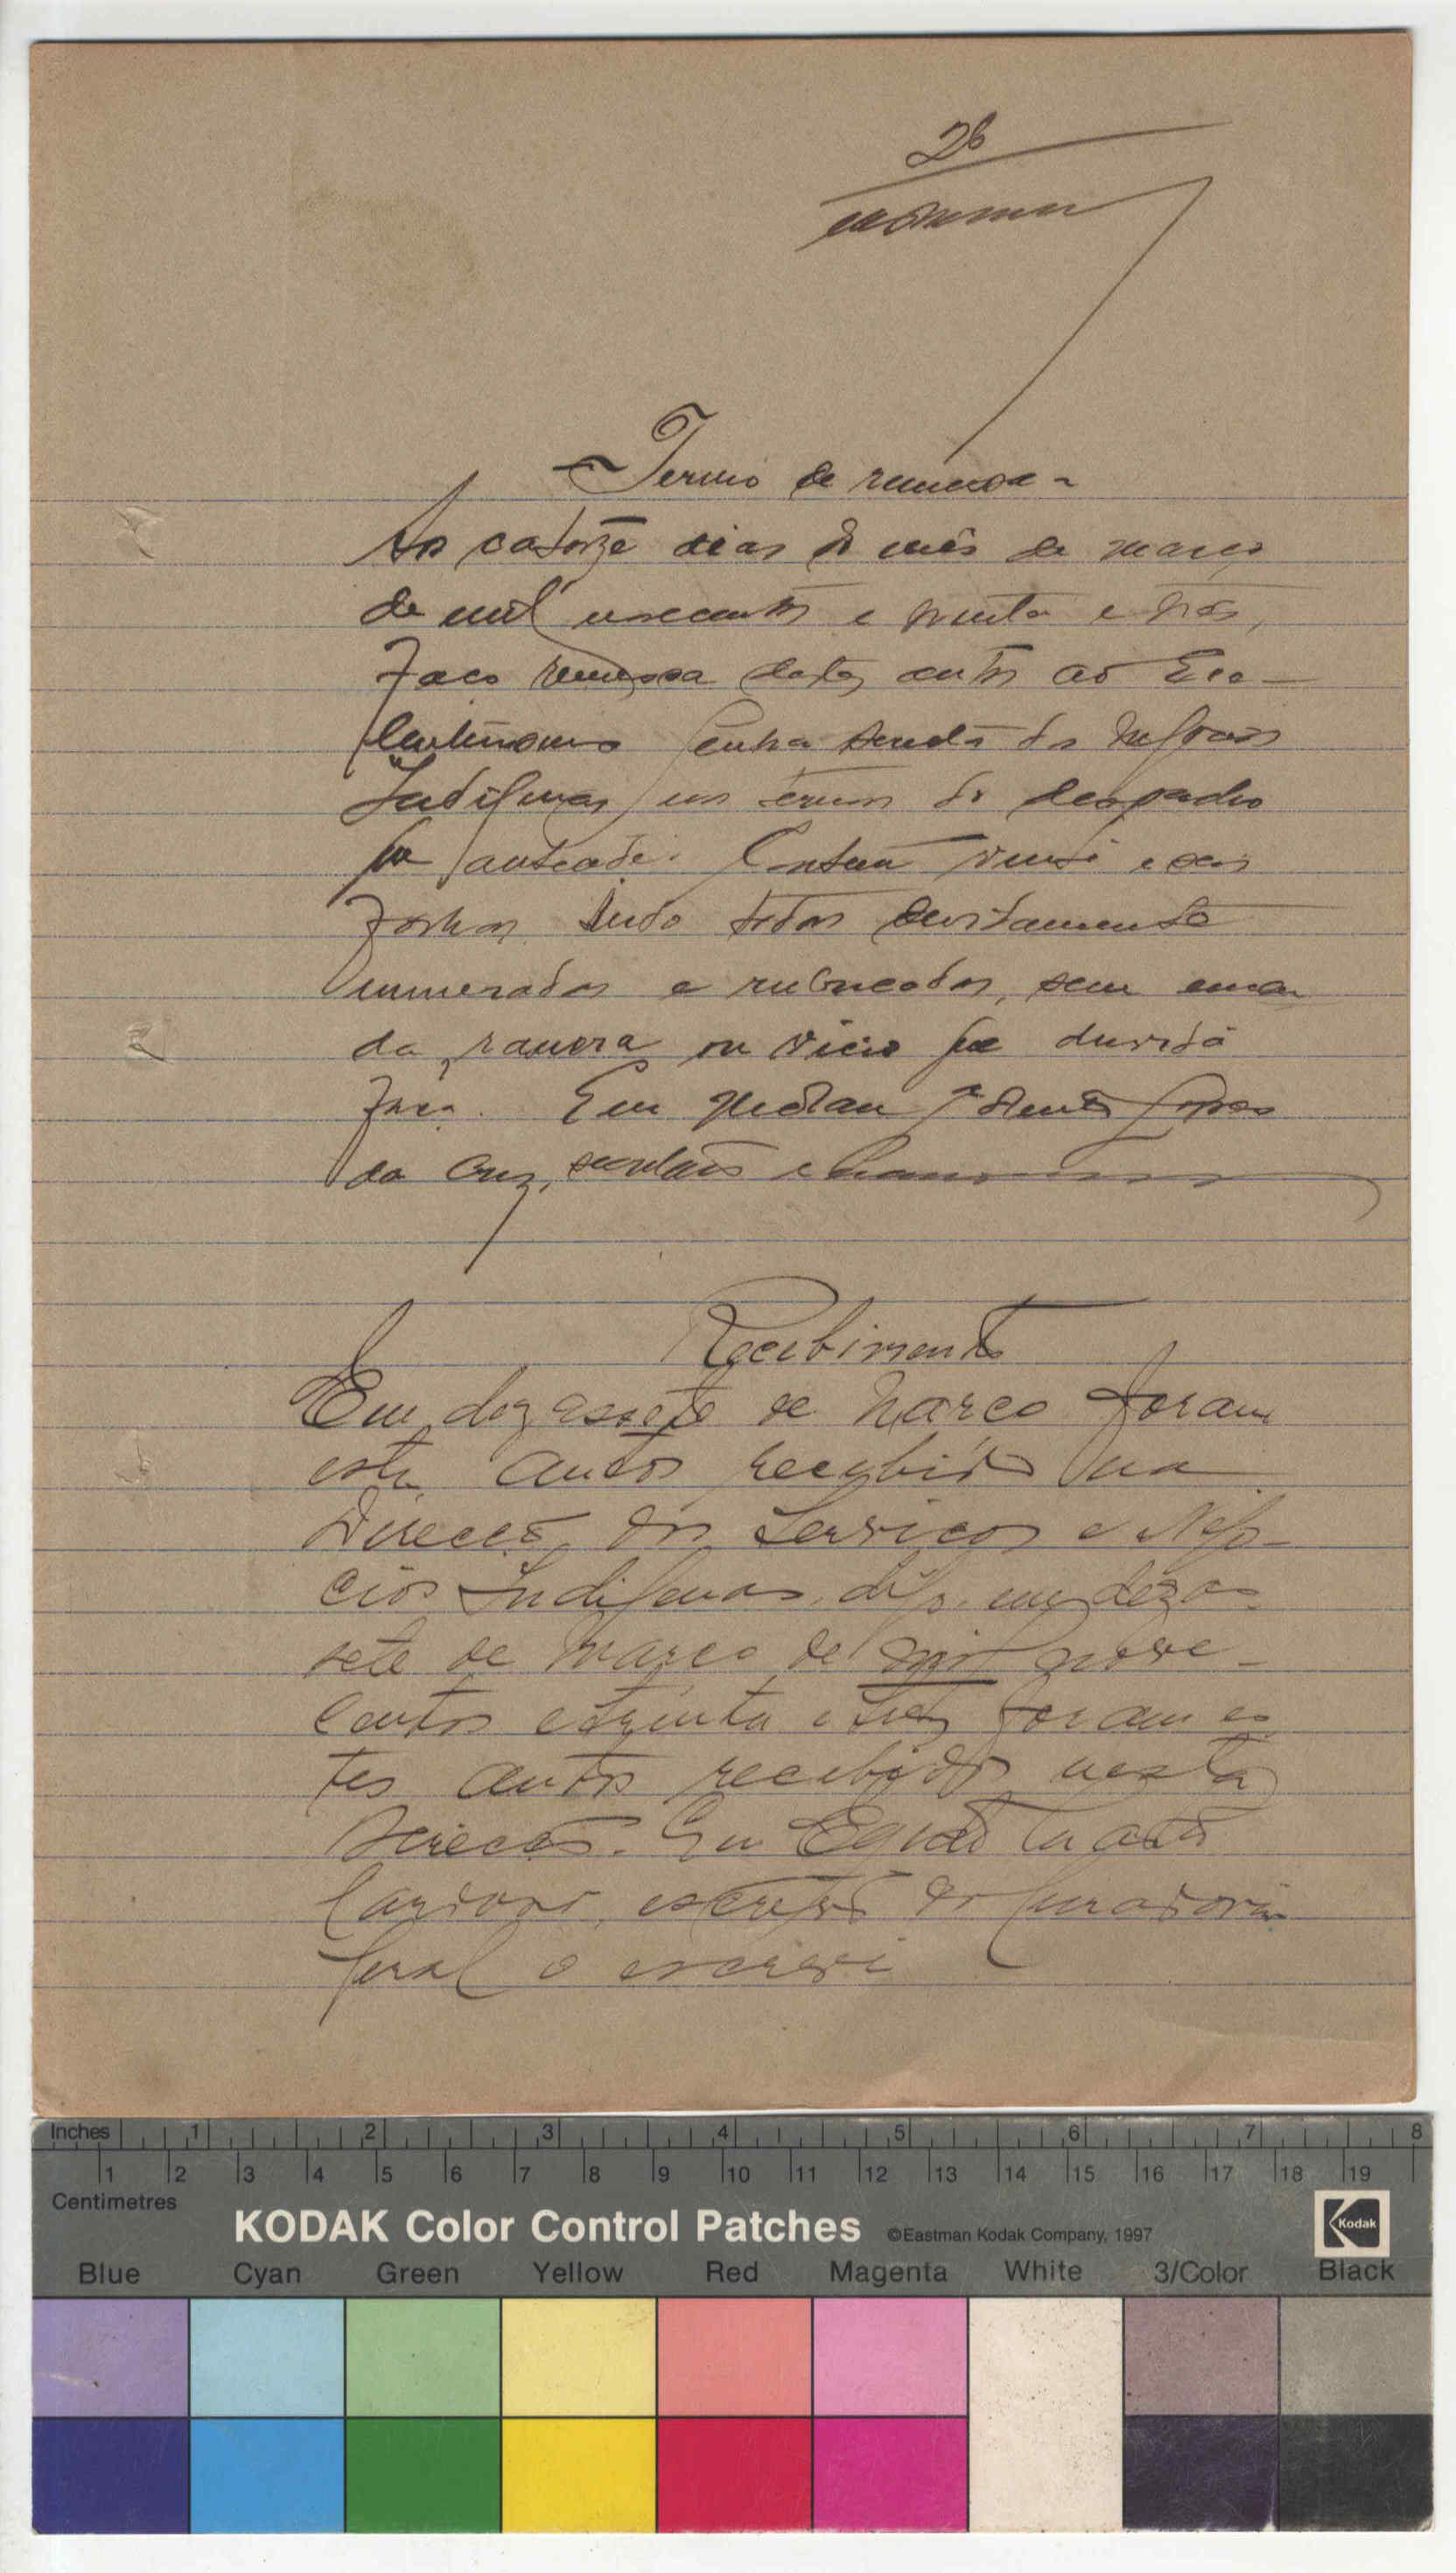 26
Termo de remessa -
Aos catorze dias do mês de março
de mil novecentos e trinta e três,
faço remessa destes autos ao Exce-
lentíssimo Senhor dos Negocios
Indigenas nos termos do despacho
Contem vinte e seis
folhas tudo todas devidamente
numeradas e rubricadas, sem emen
da, rasura ou vicio que duvida
faça. Eu Lopes
da Cruz, secretario o
Recebimento
Em dezassete de Março foram
estes autos recebidos na
Direcção dos Serviços e Nego-
cios Indigenas, digo, em dezas-
sete de Março de mil nove-
centos e trinta e tres foram es
tes autos recebidos nesta
Direcção. Eu
Cardoso, escrivão da Curadoria
Geral o escrevi
Inches 1 2 3 4 5 6 7 8
1 2 3 4 5 6 7 8 9 10 11 12 13 14 15 16 17 18 19
Centimetres
KODAK Color Control Patches ©Eastman Kodak Company, 1997 Kodak
Blue Cyan Green Yellow Red Magenta White 3/Color Black